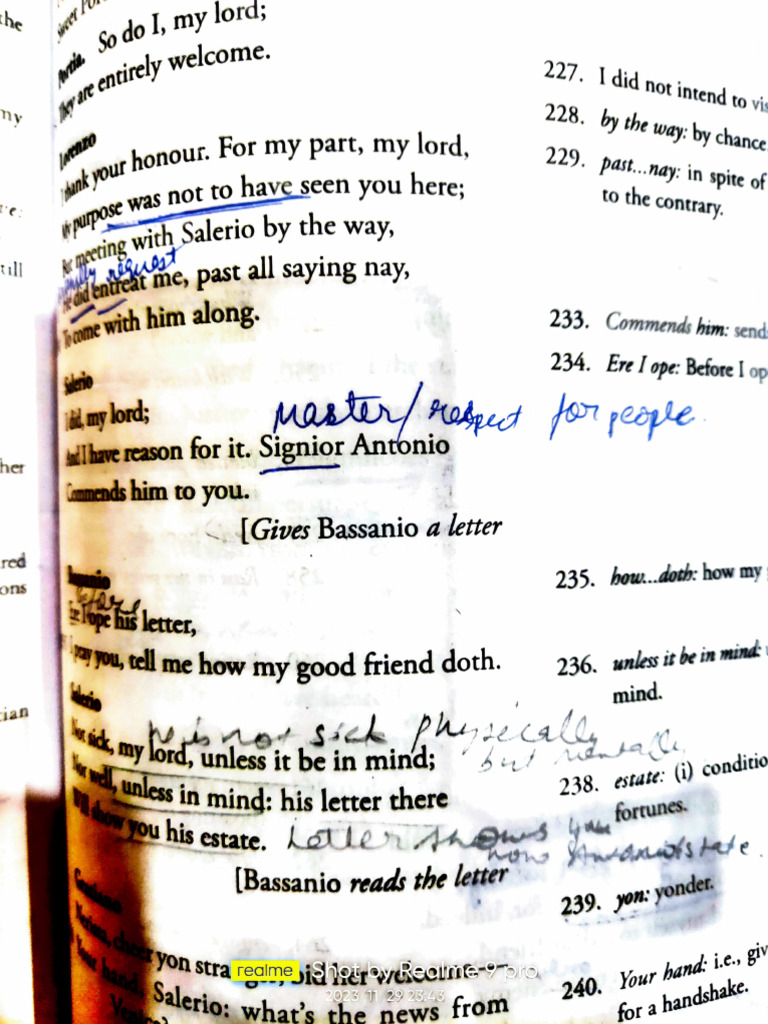 the
my
till
her
red
ons
cian
Sweet
Portia. So do I, my lord;
They are entirely welcome.
Lorenzo
I thank your honour. For my part, my lord,
My purpose was not to have seen you here;
But meeting with Salerio by the way,
request
He did entreat me, past all saying nay,
To come with him along.
Salerio
I did, my lord;
Master/respect for people.
And I have reason for it. Signior Antonio
Commends him to you.
[Gives Bassanio a letter
Bassanio
before
Ere I ope his letter,
I pray you, tell me how my good friend doth.
Salerio
he is not sick physically
but mentally.
Not sick, my lord, unless it be in mind;
Nor well, unless in mind: his letter there
Will show you his estate.
Letter shows you
how
[Bassanio reads the letter
Gratiano
Nerissa, cheer yon stranger; bid her welcome.
Your hand, Salerio: what's the news from
Venice?
227. I did not intend to vis
228. by the way: by chance
229. past...nay: in spite of
to the contrary.
233. Commends him: send
234. Ere I ope: Before I op
235. how...doth: how my
236. unless it be in mind:
mind.
238. estate: (i) conditio
fortunes.
239. yon: yonder.
240. Your hand: i.e., giv
for a handshake.
realme Shot by Realme 9 pro
2023 11 29 23:43